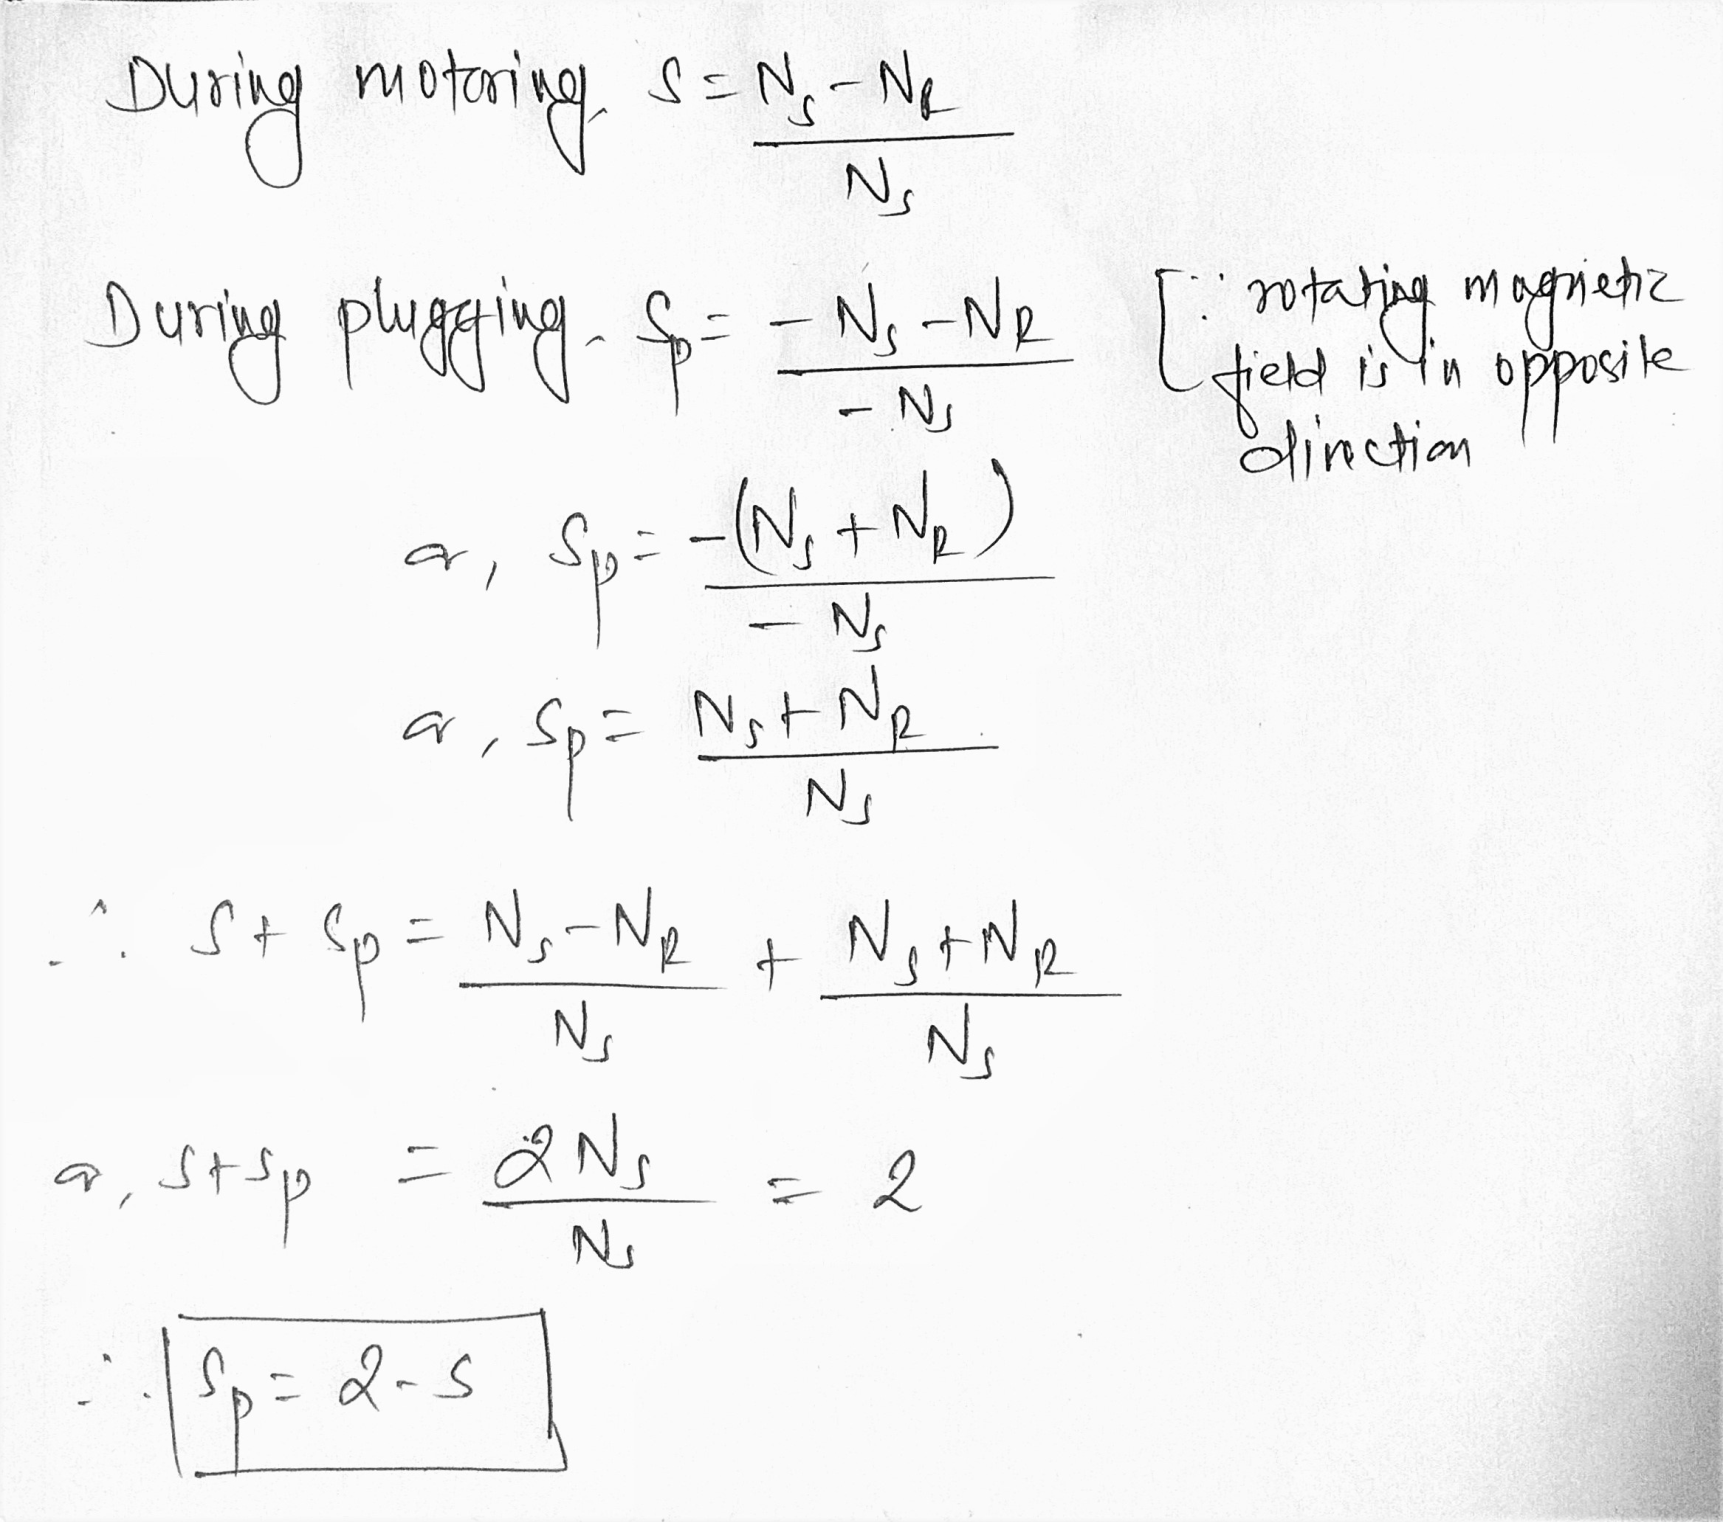 During motoring. S = (N_S - N_R) / N_S
During plugging. S_p = (-N_S - N_R) / (-N_S) [∵ rotating magnetic
field is in opposite
direction
or, S_p = -(N_S + N_R) / (-N_S)
or, S_p = (N_S + N_R) / N_S
∴ S + S_p = (N_S - N_R) / N_S + (N_S + N_R) / N_S
or, S + S_p = 2N_S / N_S = 2
∴ S_p = 2 - S